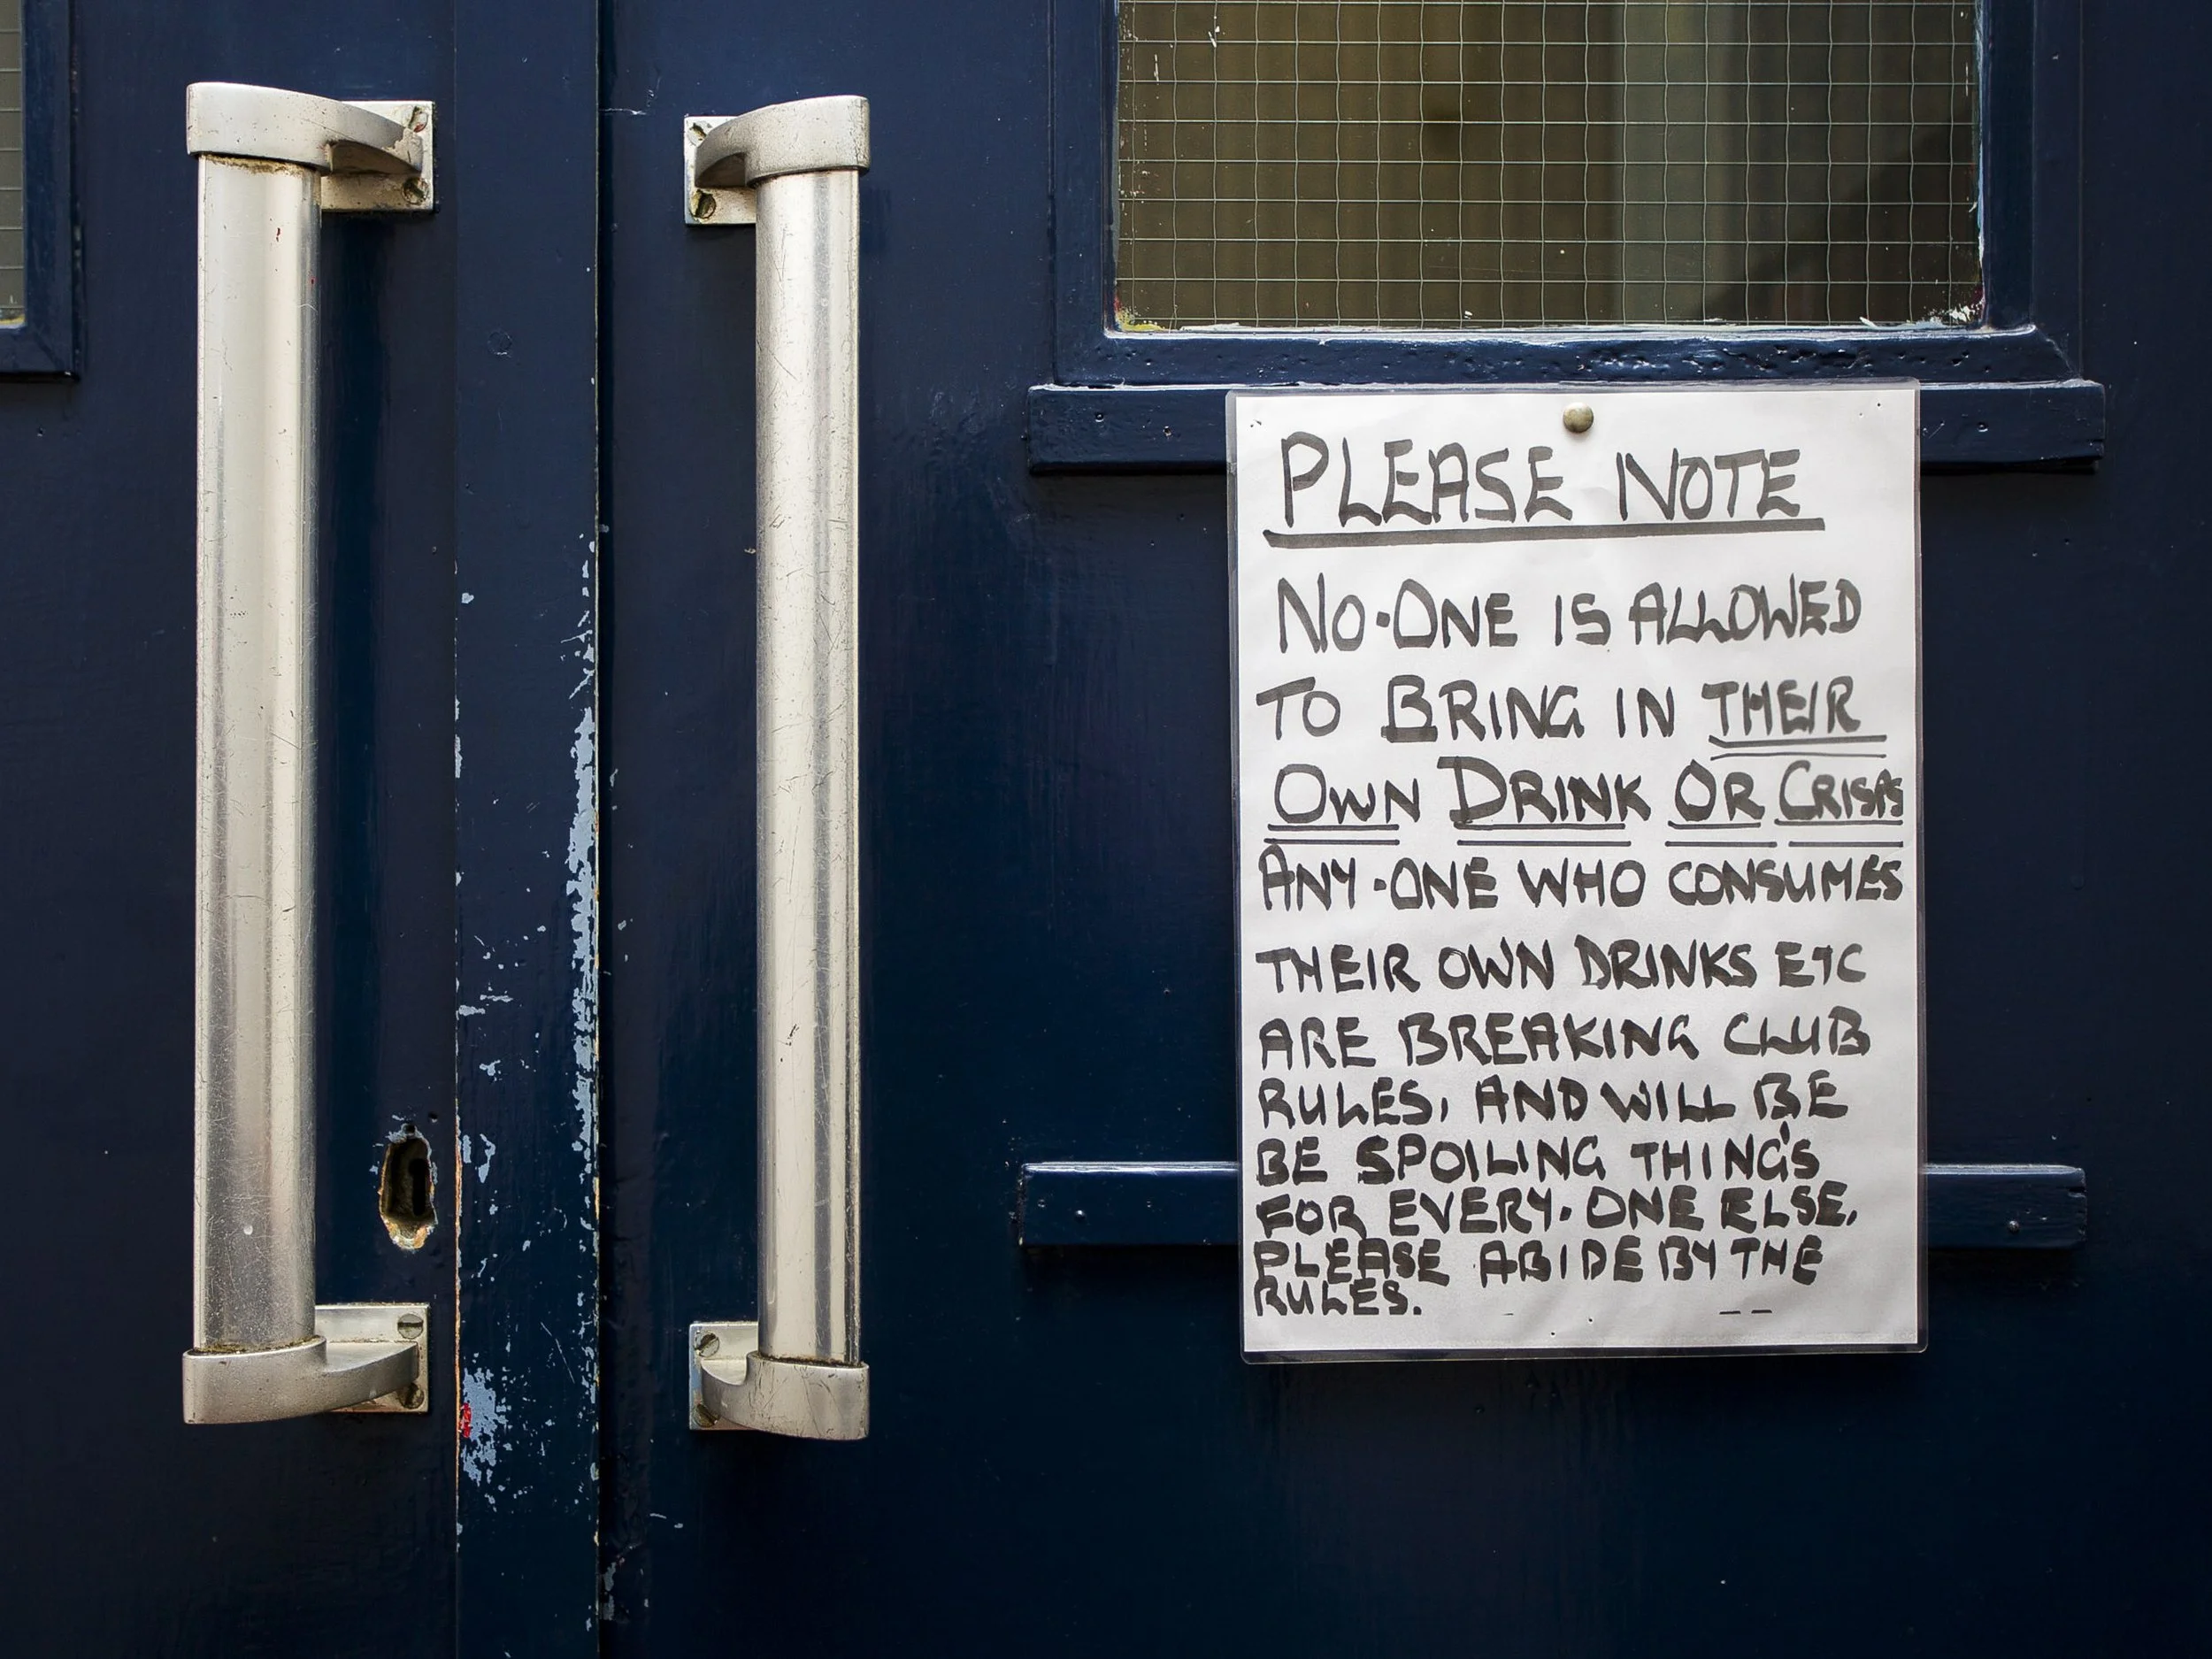 PLEASE NOTE
NO·ONE IS ALLOWED
TO BRING IN THEIR
OWN DRINK OR CRISPS
ANY·ONE WHO CONSUMES
THEIR OWN DRINKS ETC
ARE BREAKING CLUB
RULES, AND WILL BE
BE SPOILING THING'S
FOR EVERY·ONE ELSE.
PLEASE ABIDE BY THE
RULES.